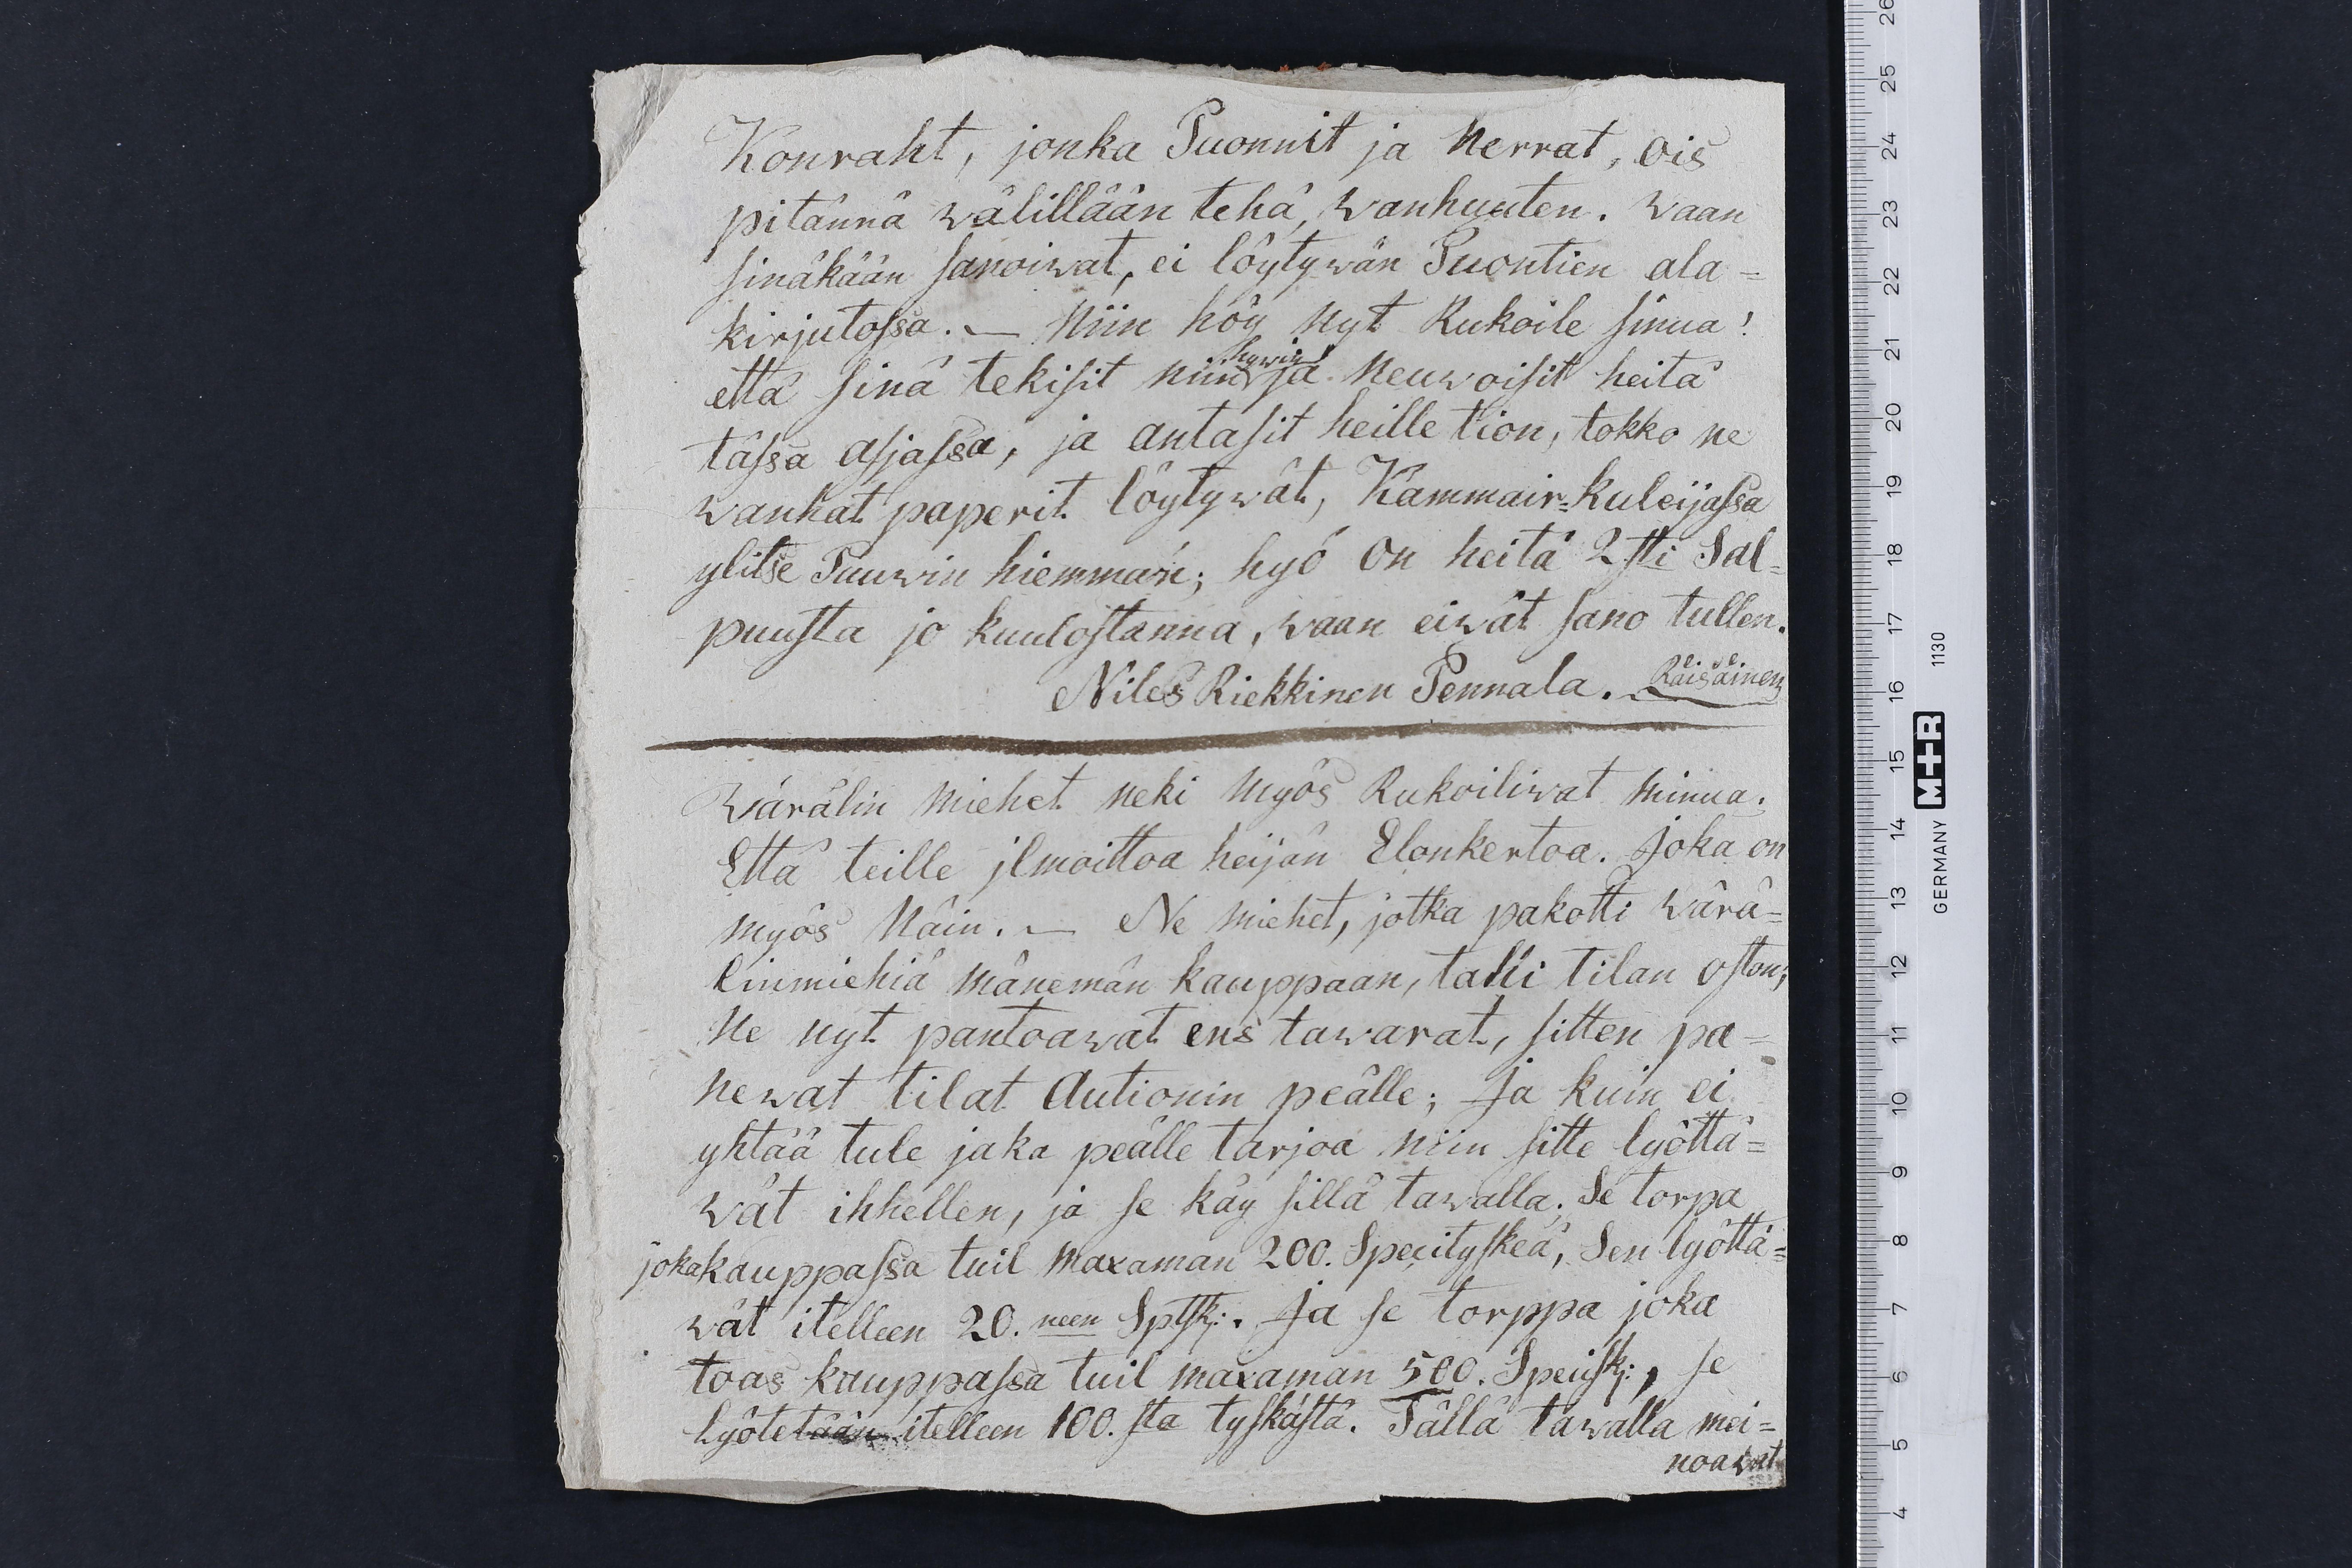 Konraht, jonka Puonnit ja Herrat, ois
pitännä wälillään tehä, wanhuuten. waan
sinäkään sanoiwat, ei löytywän Puontien ala=
kirjutossa. — Niin höy nyt Rukoile sinua!
että sinä tekisit niin hywin ja neuwoisit heitä
tässä asjassa, ja antasit heille tion, tokko ne
wanhat paperit löytywät, Kammair=kuleijassa
ylitse Puuwin hiemman; hyö on heitä 2sti Sal=
puusta jo kuulostanna, waan eiwät sano tullen.
Niles Riekkinen Pennala. Räisäinen
Wärälin miehet neki myös Rukoiliwat minua.
Että teille jlmoittoa heijän Elonkertoa. Joka on
myös Näin. — Ne miehet, jotka pakotti wärä=
linmiehiä mänemän kauppaan, talli tilan oston;
Ne nyt pantoawat ens tawarat, sitten pa=
newat tilat Autionin peälle; Ja kuin ei
yhtää tule jaka peälle tarjoa niin sitte lyöttä=
wät ihhellen, ja se käy sillä tawalla. Se torpa
joka kauppassa tuil maxaman 200. Specityskeä, Sen lyöttä=
wät itelleen 20. neen Sptskj:. Ja se torppa joka
toas kauppassa tuil maxaman 500. Speciskj:, se
lyötetään itelleen 100. sta tyskästä. Tällä tawalla mei=
noawat